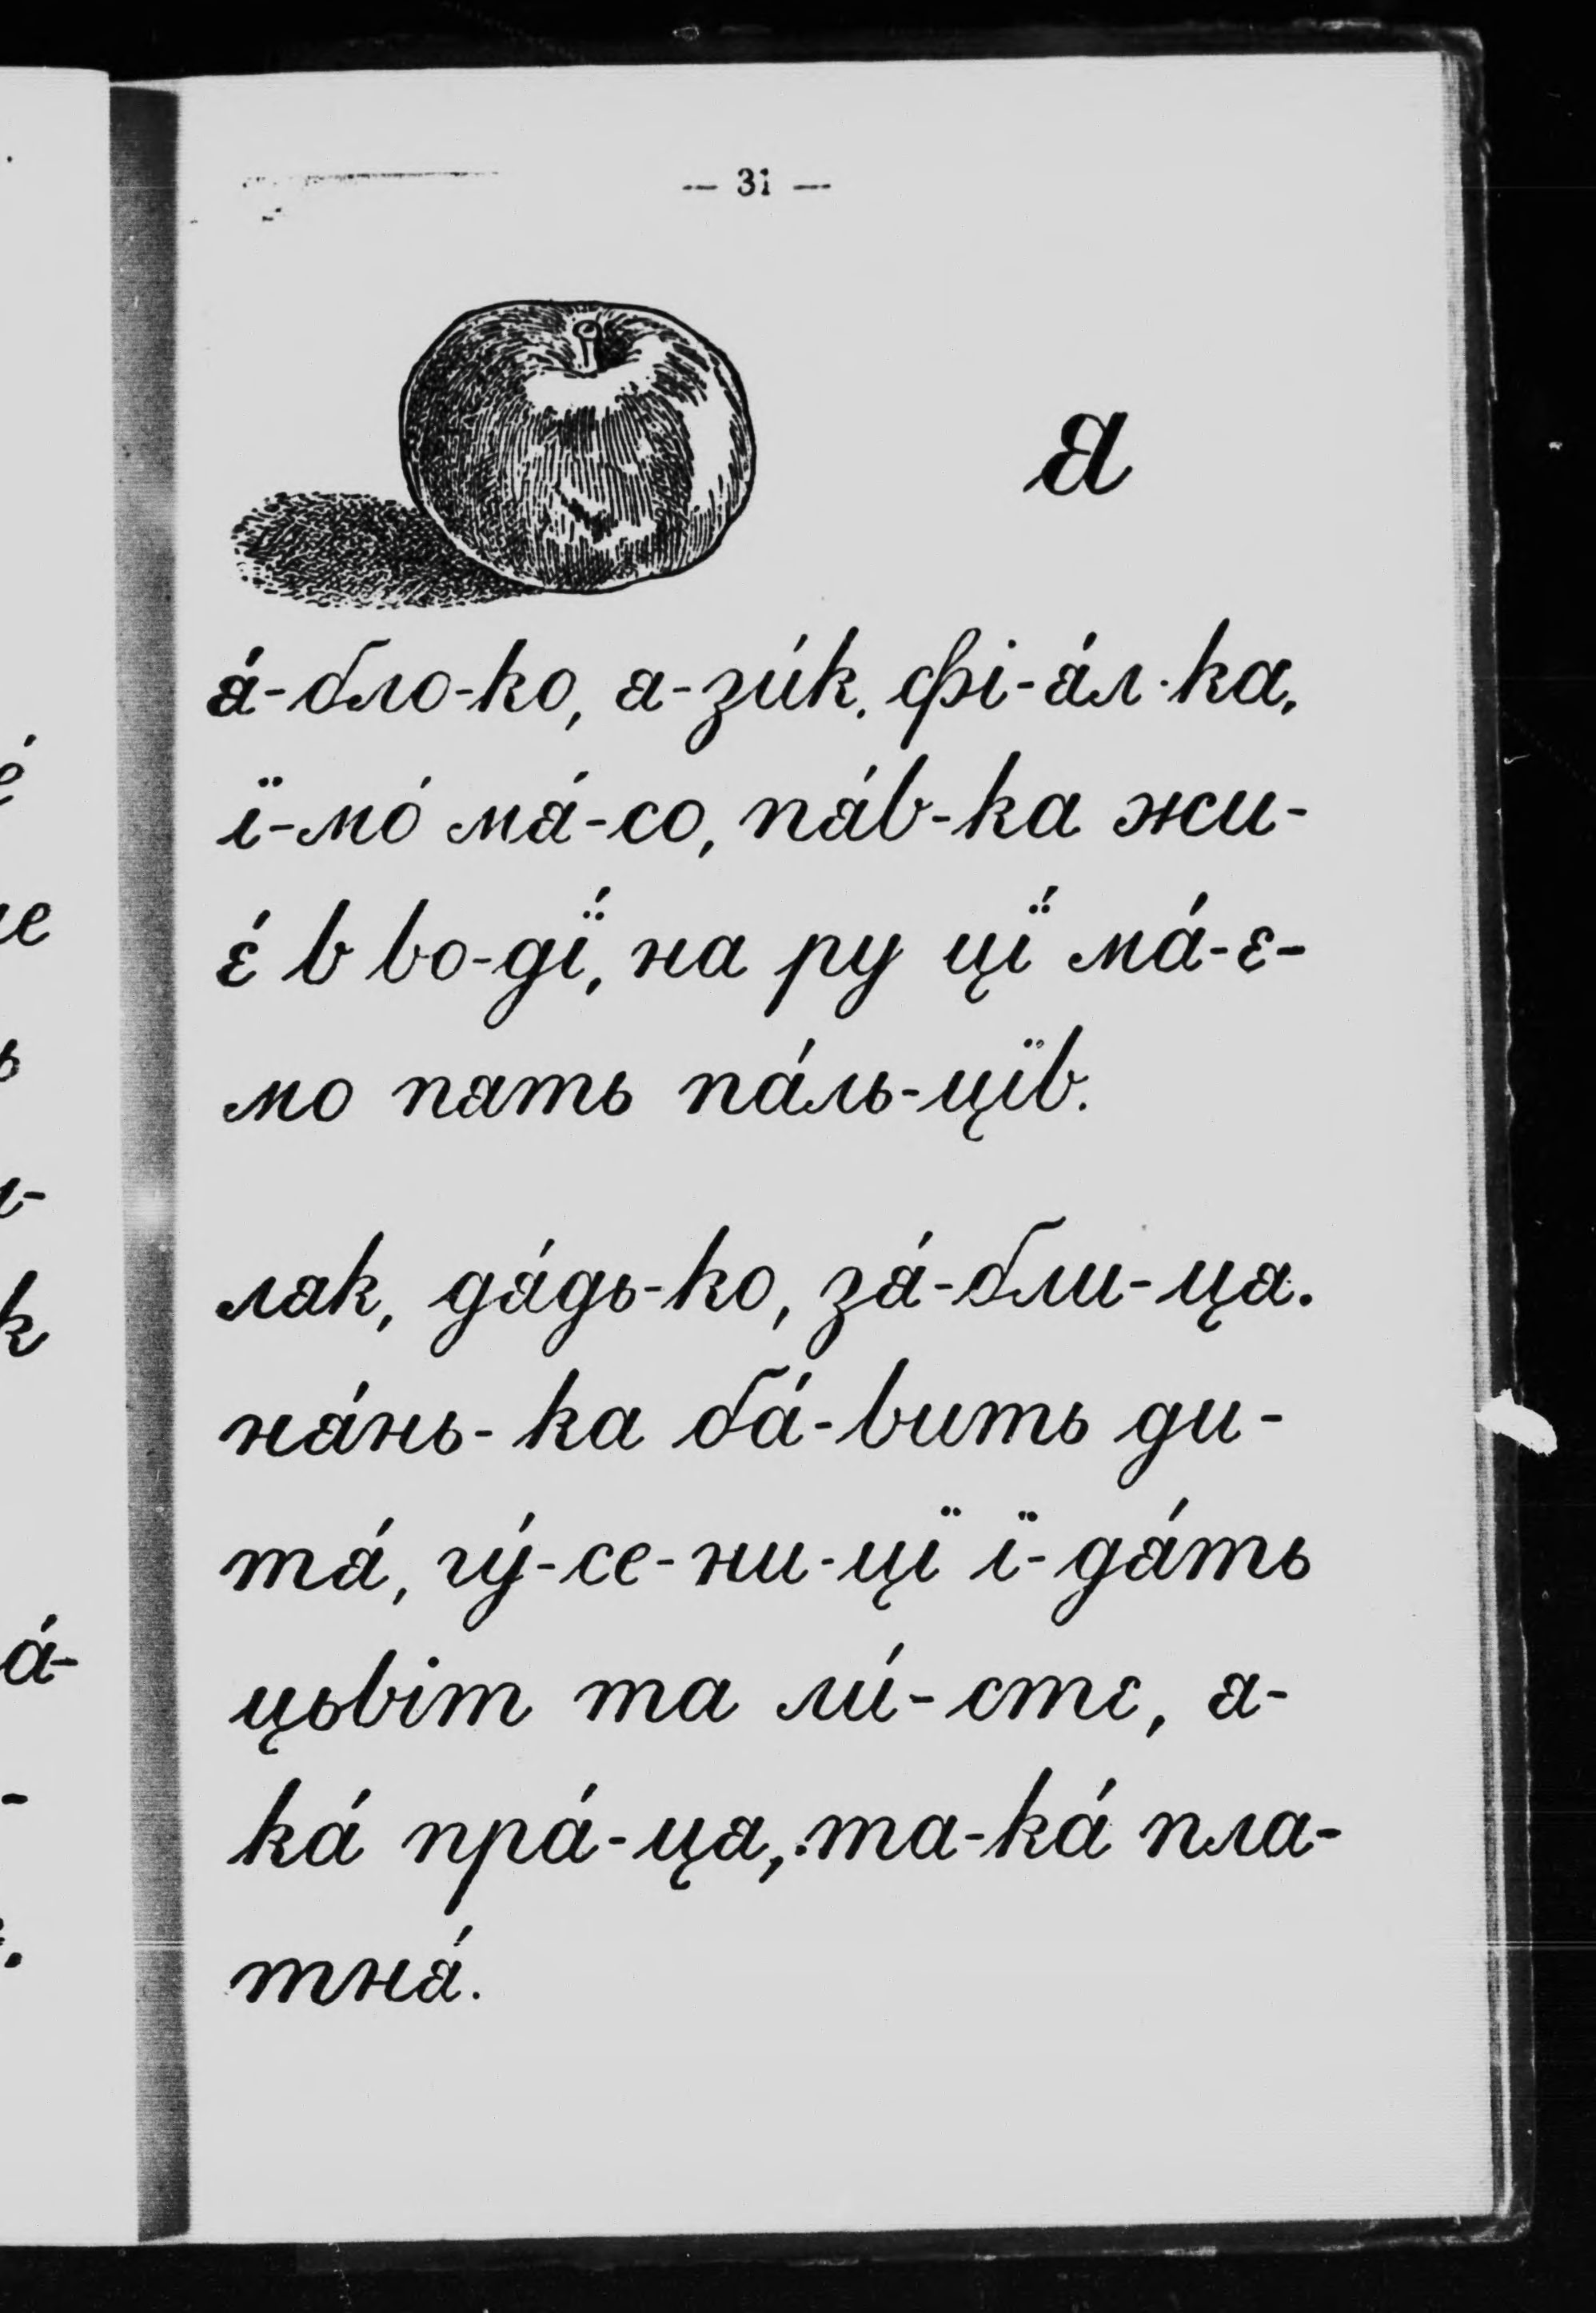 — 31 —
я
я́-бло-ко, я-зи́к. фі-я́л-ка,
ї-мо́ мя́-со, пя́в-ка жи-
є́ в во-дї́, на ру цї́ ма́-є-
мо пять па́ль-цїв.
ляк, дя́дь-ко, зя́-бли-ця.
ня́нь-ка ба́-вить ди-
тя́, гу́-се-ни-цї ї-дя́ть
цьвіт та ли́-стє, я-
ка́ пра́-ця, та-ка́ пла-
тня́.